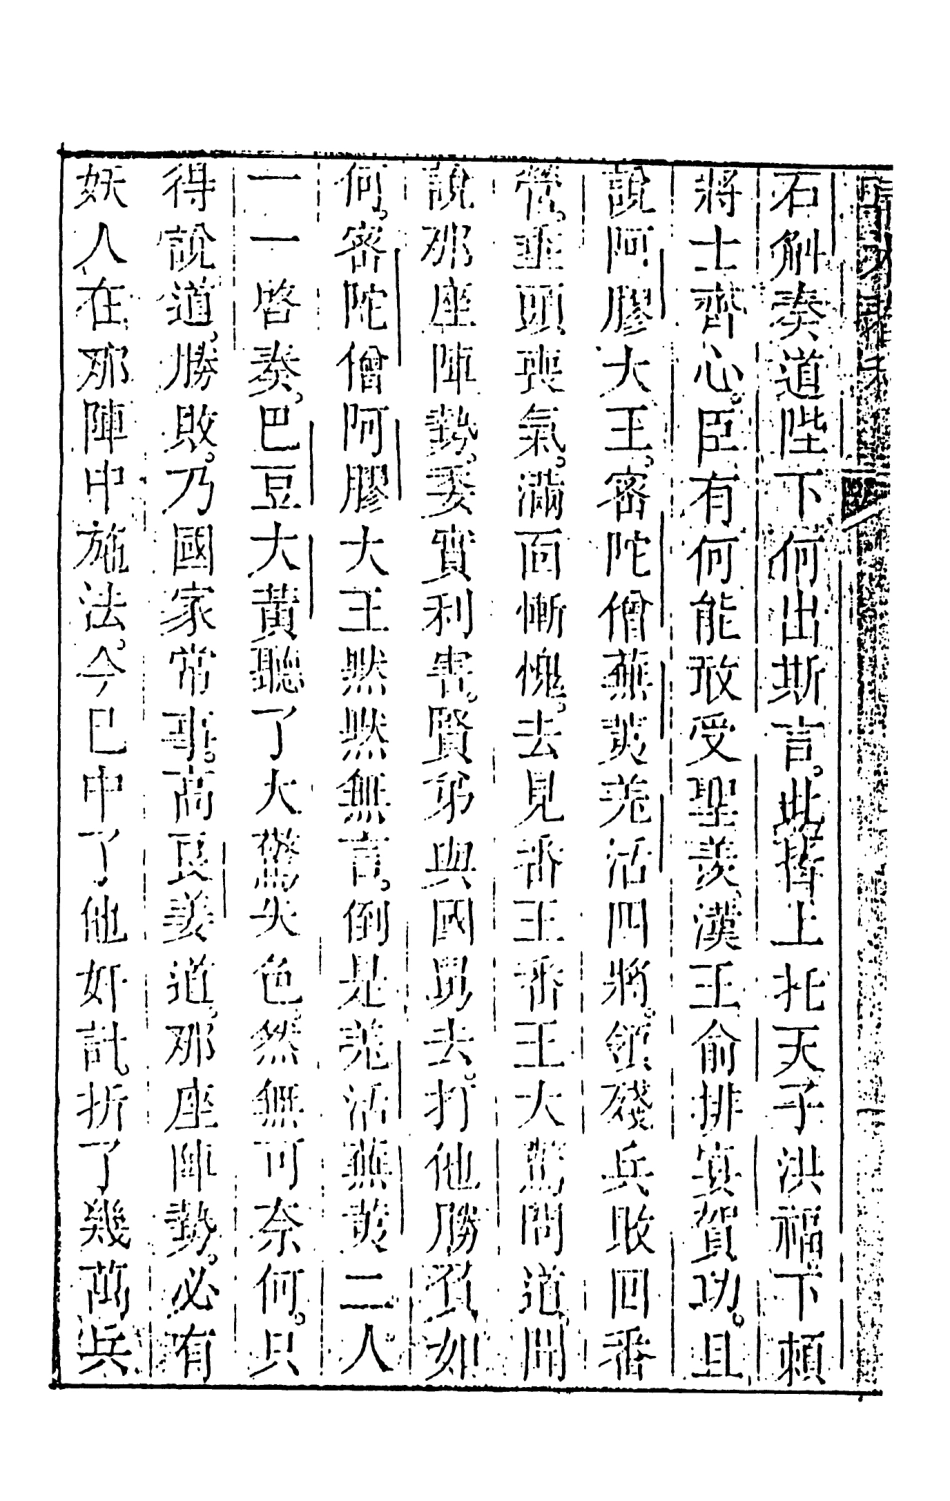 石斛奏道陛下何出斯言此皆上托天子洪福下賴
將士齊心臣有何能敢受聖羨漢王俞排宴賀功且
說阿膠大王審陀僧蕪荑羌活四將領殘兵敗回番
營垂頭喪氣滿面慚愧去見番王番王大驚問道聞
說那座陣勢委實利害賢弟與國舅去打他勝負如
何審陀僧阿膠大王默默無言倒是羌活蕪荑二人
一一啓奏巴豆大黃聽了大驚失色然無可奈何只
得說道勝敗乃國家常事高良姜道那座陣勢必有
妖人在那陣中施法今已中了他奸計折了幾萬兵